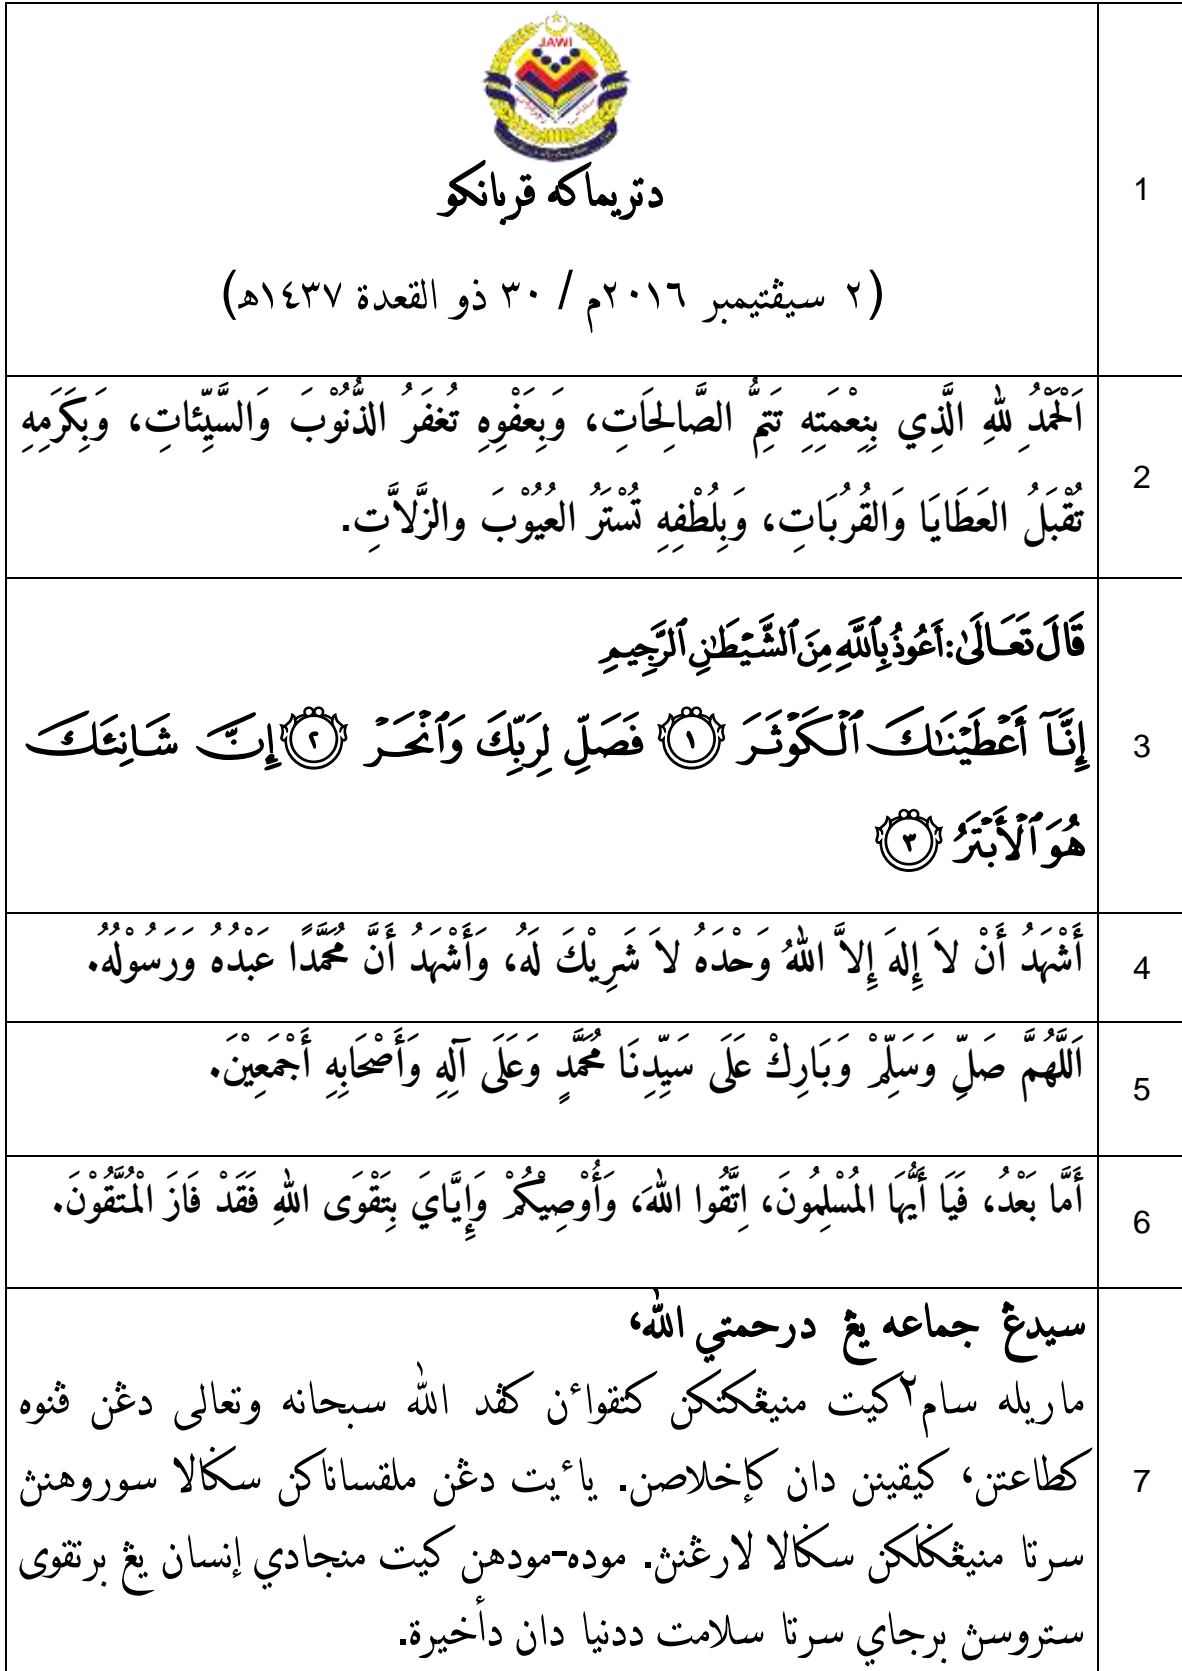 JAWI
دتريماکه قربانکو
(٢ سيڤتيمبر ٢٠١٦م / ٣٠ ذو القعدة ١٤٣٧هـ)
1
اَلْحَمْدُ لِلّٰهِ الَّذِي بِنِعْمَتِهِ تَتِمُّ الصَّالِحَاتِ، وَبِعَفْوِهِ تُغفَرُ الذُّنُوْبَ وَالسَّيِّئاتِ، وَبِكَرَمِهِ
تُقْبَلُ العَطَايَا وَالقُرُبَاتِ، وَبِلُطْفِهِ تُسْتَرُ العُيُوْبَ والزَّلاَّتِ.
2
قَالَ تَعَالَىٰ: أَعُوذُ بِٱللَّهِ مِنَ ٱلشَّيْطَٰنِ ٱلرَّجِيمِ
إِنَّآ أَعْطَيْنَٰكَ ٱلْكَوْثَرَ ١ فَصَلِّ لِرَبِّكَ وَٱنْحَرْ ٢ إِنَّ شَانِئَكَ
هُوَ ٱلْأَبْتَرُ ٣
3
أَشْهَدُ أَنْ لاَ إِلهَ إِلاَّ اللهُ وَحْدَهُ لاَ شَرِيْكَ لَهُ، وَأَشْهَدُ أَنَّ مُحَمَّدًا عَبْدُهُ وَرَسُوْلُهُ.
4
اَللَّهُمَّ صَلِّ وَسَلِّمْ وَبَارِكْ عَلَى سَيِّدِنَا مُحَمَّدٍ وَعَلَى آلِهِ وَأَصْحَابِهِ أَجْمَعِيْنَ.
5
أَمَّا بَعْدُ، فَيَا أَيُّهَا المُسْلِمُونَ، اِتَّقُوا اللهَ، وَأُوْصِيْكُمْ وَإِيَّايَ بِتَقْوَى اللهِ فَقَدْ فَازَ الْمُتَّقُوْنَ.
6
سيدڠ جماعه يڠ درحمتي الله،
ماريله سام٢ كيت منيڠكتكن كتقواءن كڤد الله سبحانه وتعالى دڠن ڤنوه
كطاعتن، كيقينن دان كإخلاصن. ياءيت دڠن ملقساناكن سݢالا سوروهنڽ
سرتا منيڠݢلكن سݢالا لارڠنڽ. موده-مودهن كيت منجادي إنسان يڠ برتقوى
ستروسڽ برجاي سرتا سلامت ددنيا دان دأخيرة.
7